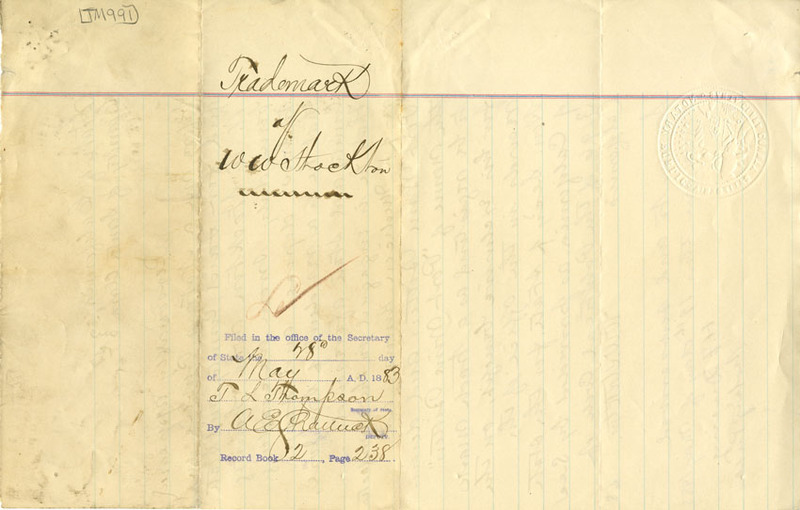 TM991
Trademark
of
W W Stockton
Filed in the office of the Secretary
of State the 28th day
of May A. D. 1883
T L Thompson
Secretary of State
By A E
Deputy.
Record Book 2, Page 238.